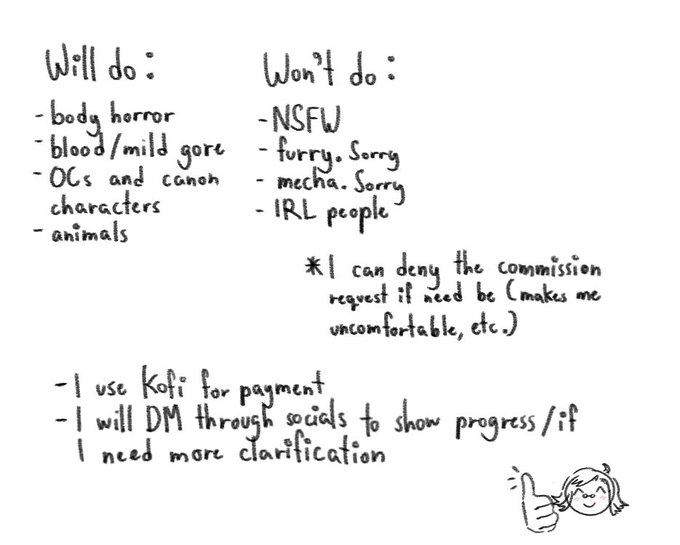 Will do:
- body horror
- blood/mild gore
- OCs and canon
characters
- animals
Won't do:
- NSFW
- furry. Sorry
- mecha. Sorry
- IRL people
*I can deny the commission
request if need be (makes me
uncomfortable, etc.)
- I use Kofi for payment
- I will DM through socials to show progress/if
I need more clarification